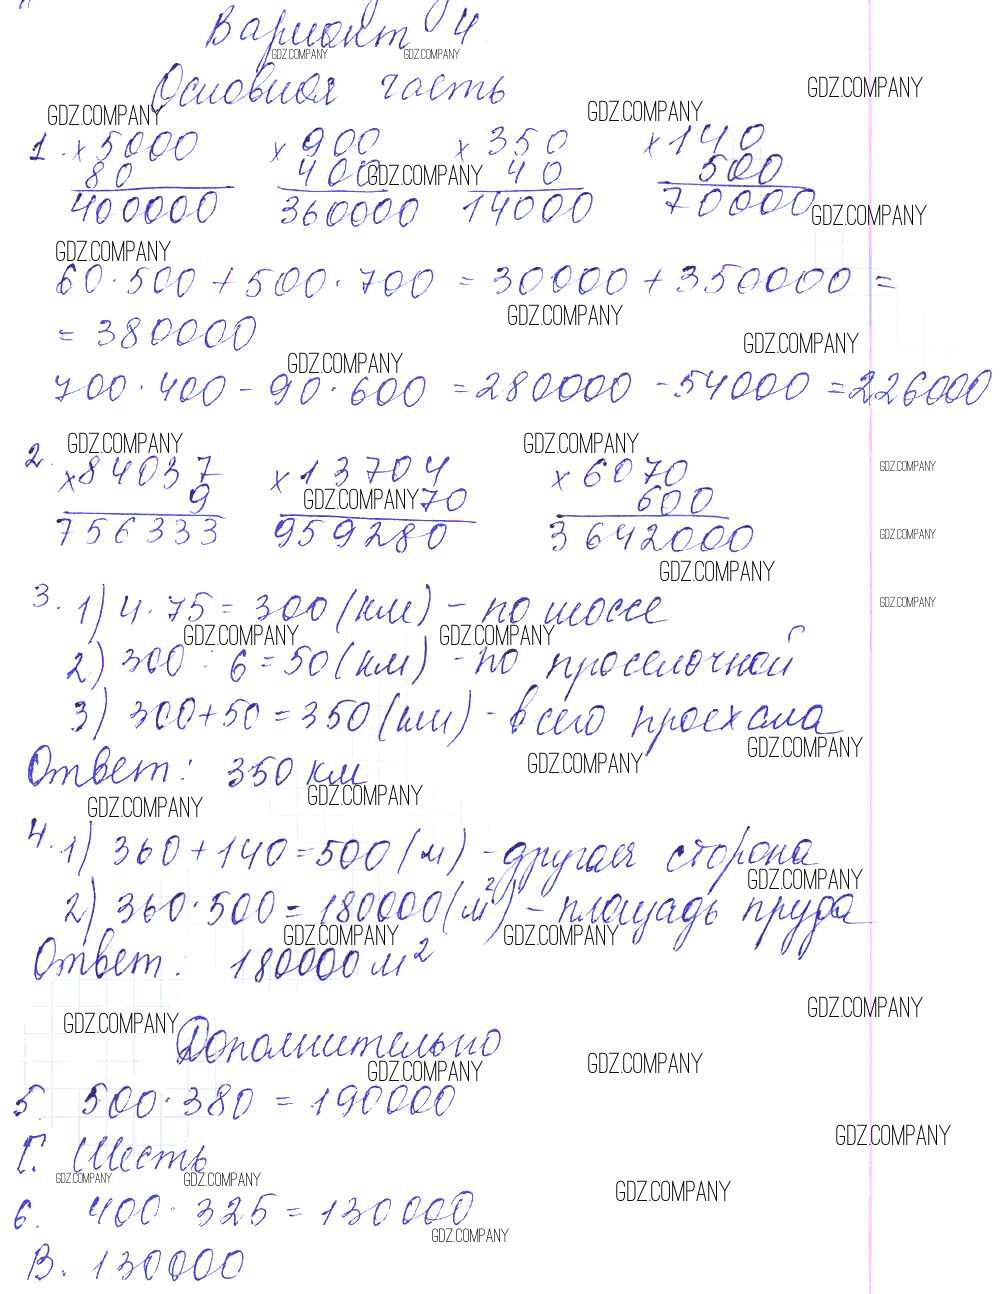 Вариант 4
Основная часть
1. ×5000 ×900 ×350 ×140
80 400 40 500
400000 360000 14000 70000
60·500+500·700 = 30000+350000 =
= 380000
700·400-90·600 = 280000-54000 = 226000
2. ×84037 ×13704 ×6070
9 70 600
756333 959280 3642000
3. 1) 4·75 = 300 (км) - по шоссе
2) 300 : 6 = 50 (км) - по проселочной
3) 300+50 = 350 (км) - всего проехала
Ответ: 350 км
4. 1) 360+140=500 (м) - другая сторона
2) 360·500 = 180000 (м²) - площадь пруда
Ответ: 180000 м²
Дополнительно
5. 500·380 = 190000
Г. Шесть
6. 400·325 = 130000
В. 130000
GDZ.COMPANY